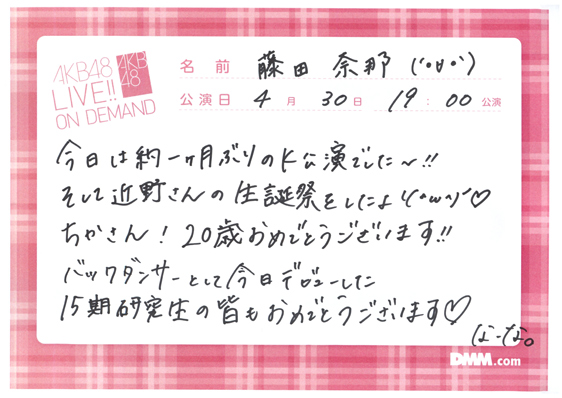 AKB48
LIVE!!
ON DEMAND
AKB
48
名前 藤田 奈那 (°∀°)
公演日 4月 30日 19:00公演
今日は約一ヶ月ぶりのK公演でした〜!!
そして近野さんの生誕祭をしたよヾ(°ω°)ノ♡
ちかさん！20歳おめでとうございます!!
バックダンサーとして今日デビューした
15期研究生の皆もおめでとうございます♡
なーな。
DMM.com